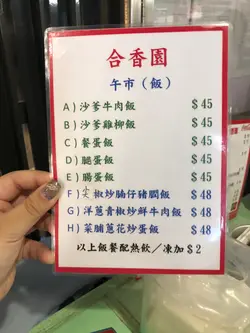 合香園
午市（飯）
A）沙爹牛肉飯 $45
B）沙爹雞柳飯 $45
C）餐蛋飯 $45
D）腿蛋飯 $45
E）腸蛋飯 $45
F）尖椒炒腩仔豬膶飯 $48
G）洋蔥青椒炒鮮牛肉飯 $48
H）菜脯蔥花炒蛋飯 $48
以上飯餐配熱飲／凍加$2